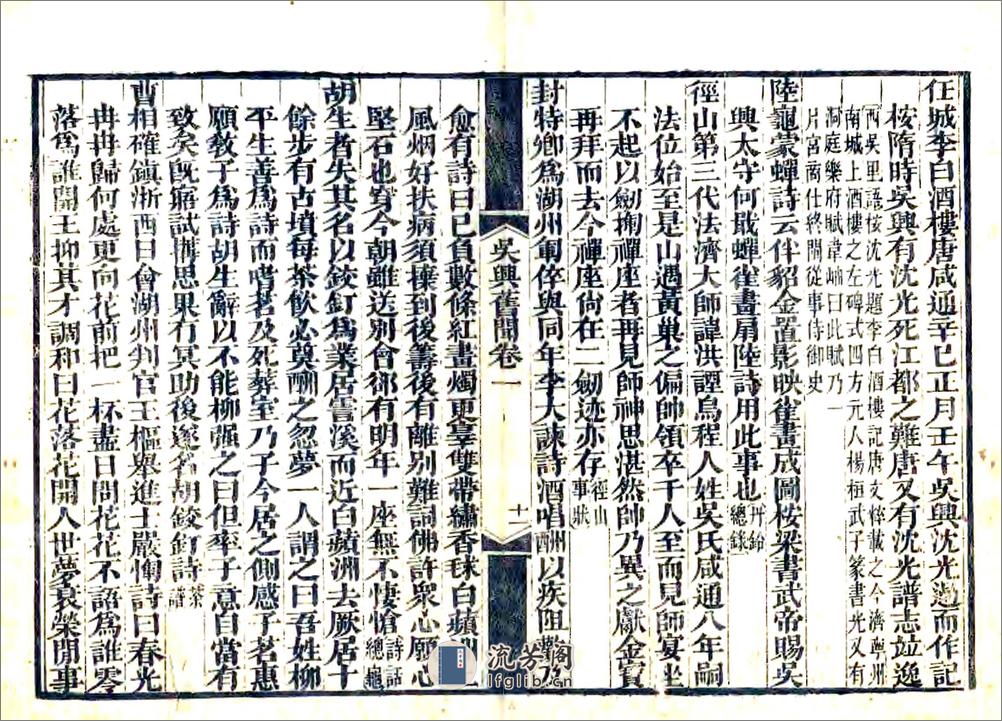 任城李白酒樓唐咸通辛巳正月壬午吳興沈光過而作記
桉隋時吳興有沈光死江都之難唐又有沈光譜志竝逸
西吳里語桉沈光題李白酒樓記唐文粹載之今濟寧州
南城上酒樓之左碑式四方元人楊桓武子篆書光又有
洞庭樂府賦韋岫曰此賦乃一
片宮商仕終閩從事侍御史
陸龜蒙蟬詩云伴貂金置影映雀畫成圖桉梁書武帝賜吳
興太守何戢蟬雀畫扇陸詩用此事也丹鉛
總錄
徑山第三代法濟大師諱洪諲烏程人姓吳氏咸通八年嗣
法位始至是山遇黃巢之偏帥領卒千人至而見師宴坐
不起以劍掏禪座者再見師神思湛然帥乃異之獻金寶
再拜而去今禪座尙在二劍迹亦存徑山
事狀
封特卿爲湖州軍倅與同年李大諫詩酒唱酬以疾阻歡及
吳興舊聞卷一
十一
愈有詩曰已負數條紅畫燭更辜雙帶繡香毬白蘋洲上
風烟好扶病須攘到後籌後有離别難詞佛許衆心願心
堅石也穿今朝雖送别會卻有明年一座無不悽愴詩話
總龜
胡生者失其名以鉸釘爲業居霅溪而近白蘋洲去厥居十
餘步有古墳每茶飲必奠酬之忽夢一人謂之曰吾姓柳
平生善爲詩而嗜茗及死葬室乃子今居之側感子茗惠
願敎子爲詩胡生辭以不能柳强之曰但率子意自當有
致矣旣寤試搆思果有冥助後遂名胡鉸釘詩茶
譜
曹相確鎭浙西日會湖州判官王樞舉進士嚴惲詩曰春光
冉冉歸何處更向花前把一杯盡日問花花不語爲誰零
落爲誰開王抑其才調和曰花落花開人世夢衰榮閒事
流芳閣
lfglib.cn